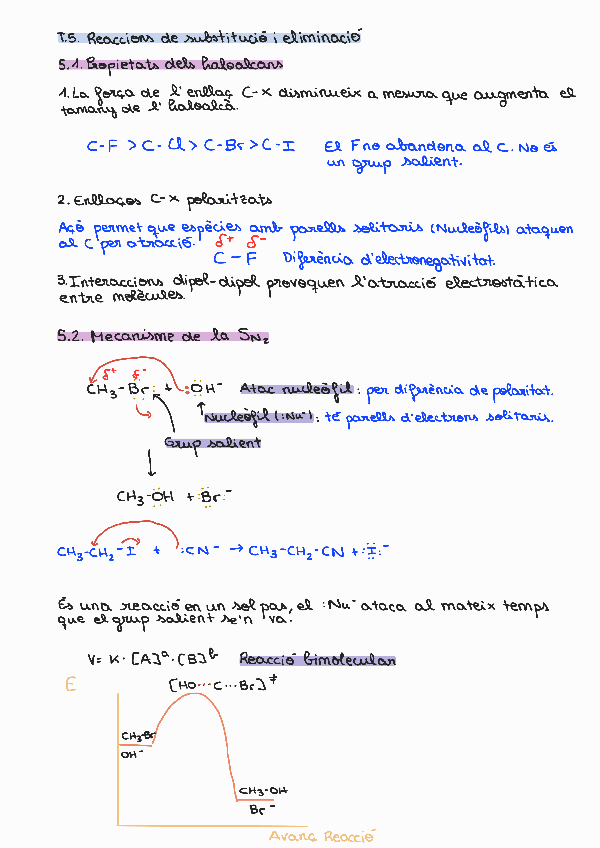 T.5. Reaccions de substitució i eliminació
5.1. Propietats dels haloalcans
1. La força de l'enllaç C-x disminueix a mesura que augmenta el
tamany de l'haloalcà.
C-F > C-Cl > C-Br > C-I El F no abandona al C. No és
un grup salient.
2. Enllaços C-x polaritzats
Açò permet que espècies amb parells solitaris (Nucleòfils) ataquen
al C per atracció. δ+ δ-
C - F Diferència d'electronegativitat.
3. Interaccions dipol-dipol provoquen l'atracció electrostàtica
entre molècules.
5.2. Mecanisme de la SN2
δ+ δ-
CH3-Br: + :OH- Atac nucleòfil: per diferència de polaritat.
Nucleòfil (:Nu-): té parells d'electrons solitaris.
Grup salient
CH3-OH + :Br:-
CH3-CH2-I + :CN- → CH3-CH2-CN + :I:-
És una reacció en un sol pas, el :Nu- ataca al mateix temps
que el grup salient se'n va.
V= K·[A]a·[B]b Reacció bimolecular
E [HO···C···Br]≠
CH3-Br
OH-
CH3-OH
Br-
Avanç Reacció